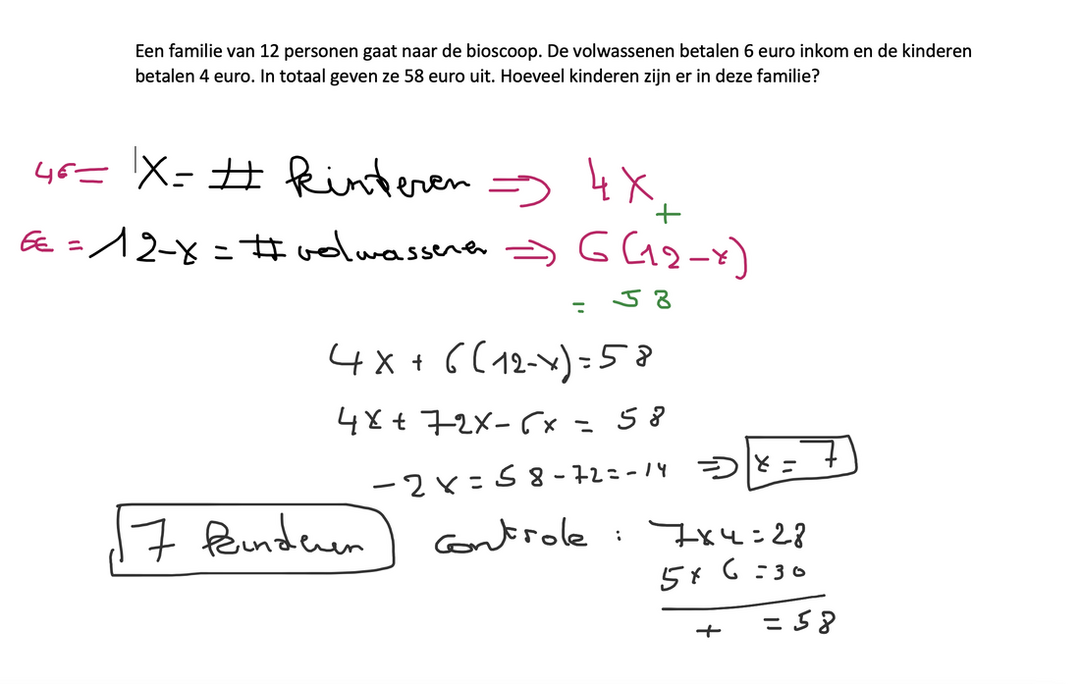 Een familie van 12 personen gaat naar de bioscoop. De volwassenen betalen 6 euro inkom en de kinderen
betalen 4 euro. In totaal geven ze 58 euro uit. Hoeveel kinderen zijn er in deze familie?
4€ = X = # kinderen ⇒ 4X
+
6€ = 12-x = # volwassenen ⇒ 6(12-x)
= 58
4x + 6(12-x) = 58
4x + 72x - 6x = 58
-2x = 58 - 72 = -14 ⇒ x = 7
7 kinderen controle : 7x4 = 28
5x6 = 30
+ = 58